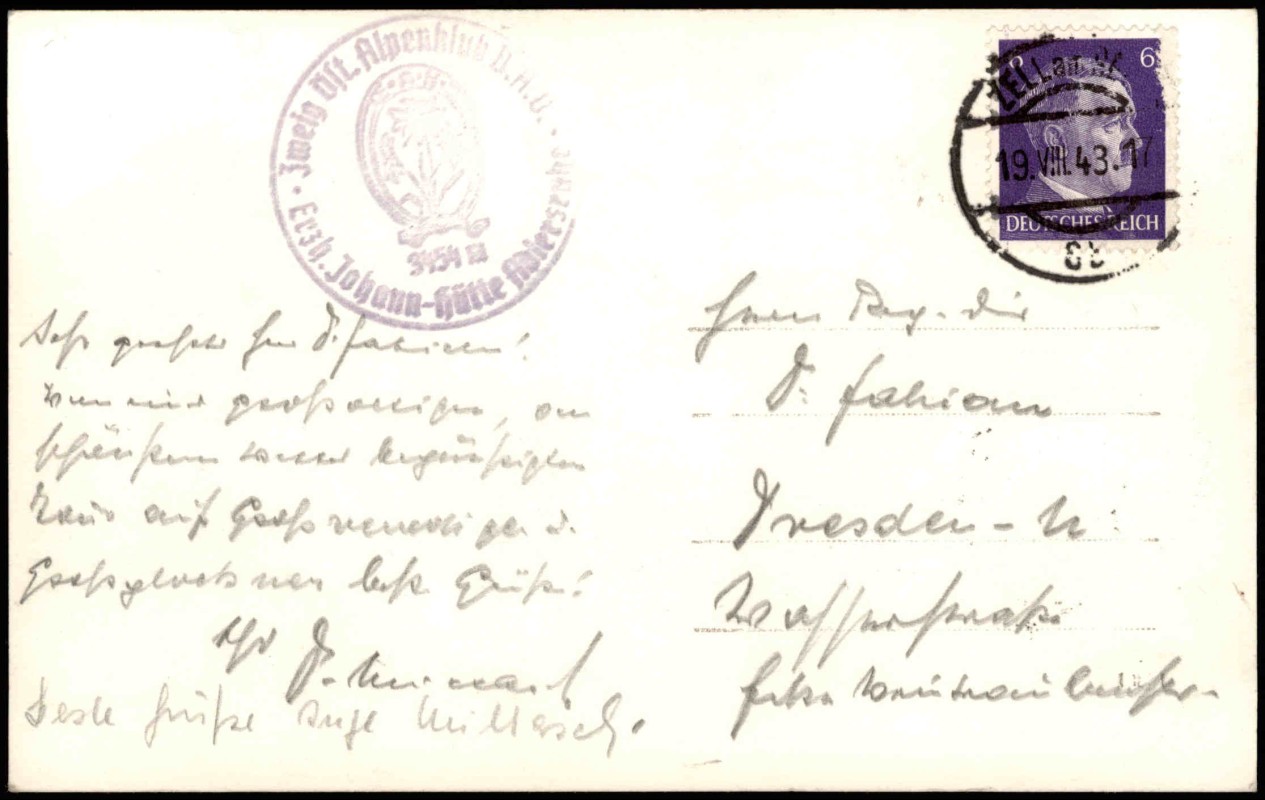 Zweig Öst. Alpenklub D.A.V.
Erzh. Johann-Hütte Adlersruhe
3454 m
6 6
ZELL am
19.VIII.43.17
DEUTSCHES REICH
Sehr geehrter Herr Dr. Fabian!
Von einer großartigen, von
schönstem Wetter begünstigten
Tour auf Großvenediger u.
Großglockner beste Grüße!
Ihr
Beste Grüße Inge
Herrn Reg. Dir
Dr. Fabian
Dresden - N.
Wasserstraße
Ecke